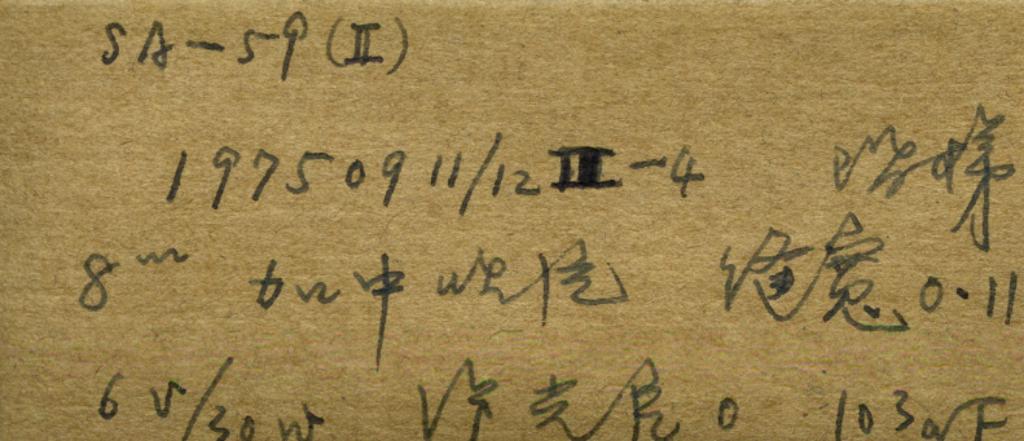 SA-59(Ⅱ)
19750911/12 Ⅲ-4 阶梯
8m 加中 缝宽 0.11
6V/30W 0 103aF